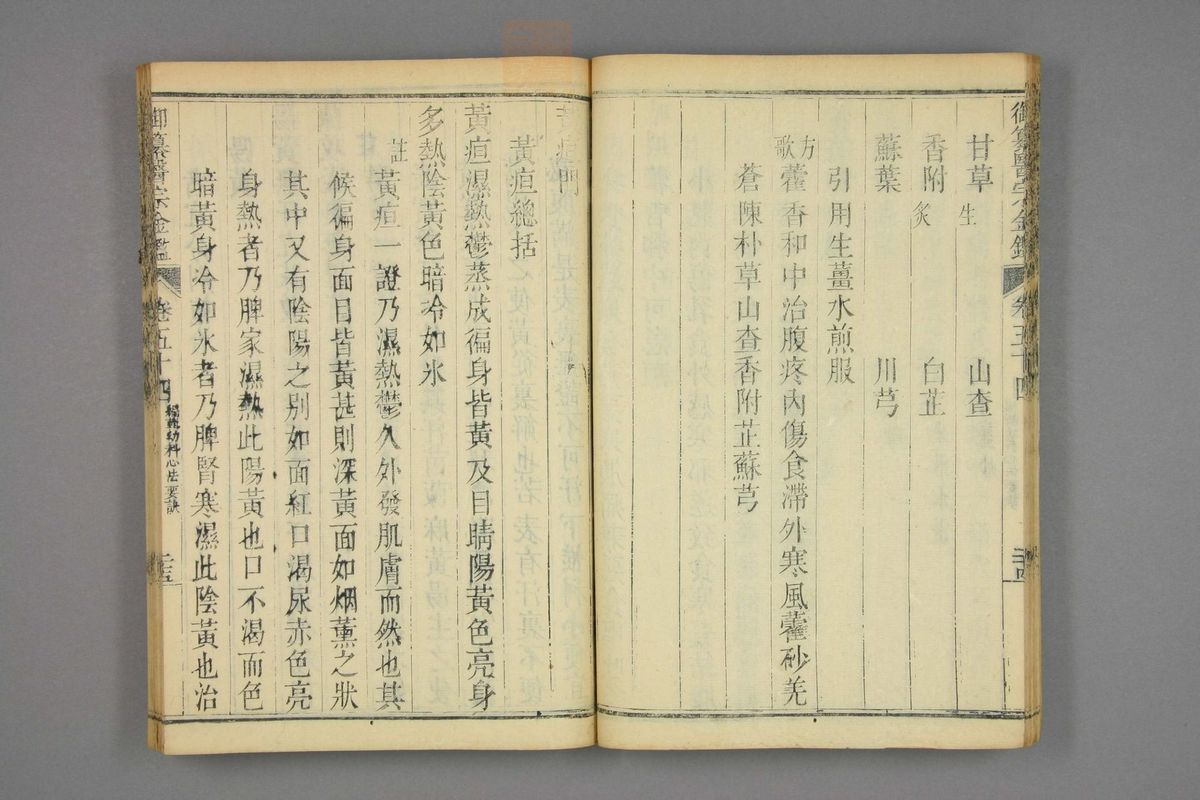 御纂醫宗金鑑 卷五十四 二十四
甘草生 山查
香附炙 白芷
蘇葉 川芎
引用生薑水煎服
方歌 藿香和中治腹疼內傷食滯外寒風藿砂羌
蒼陳朴草山查香附芷蘇芎
黃疸門
黃疸總括
黃疸濕熱鬱蒸成徧身皆黃及目睛陽黃色亮身
多熱陰黃色暗冷如氷
註 黃疸一證乃濕熱鬱久外發肌膚而然也其
候徧身面目皆黃甚則深黃面如烟薰之狀
其中又有陰陽之別如面紅口渴尿赤色亮
身熱者乃脾家濕熱此陽黃也口不渴而色
暗黃身冷如氷者乃脾腎寒濕此陰黃也治
御纂醫宗金鑑 卷五十四 編輯幼科心法要訣 二十五